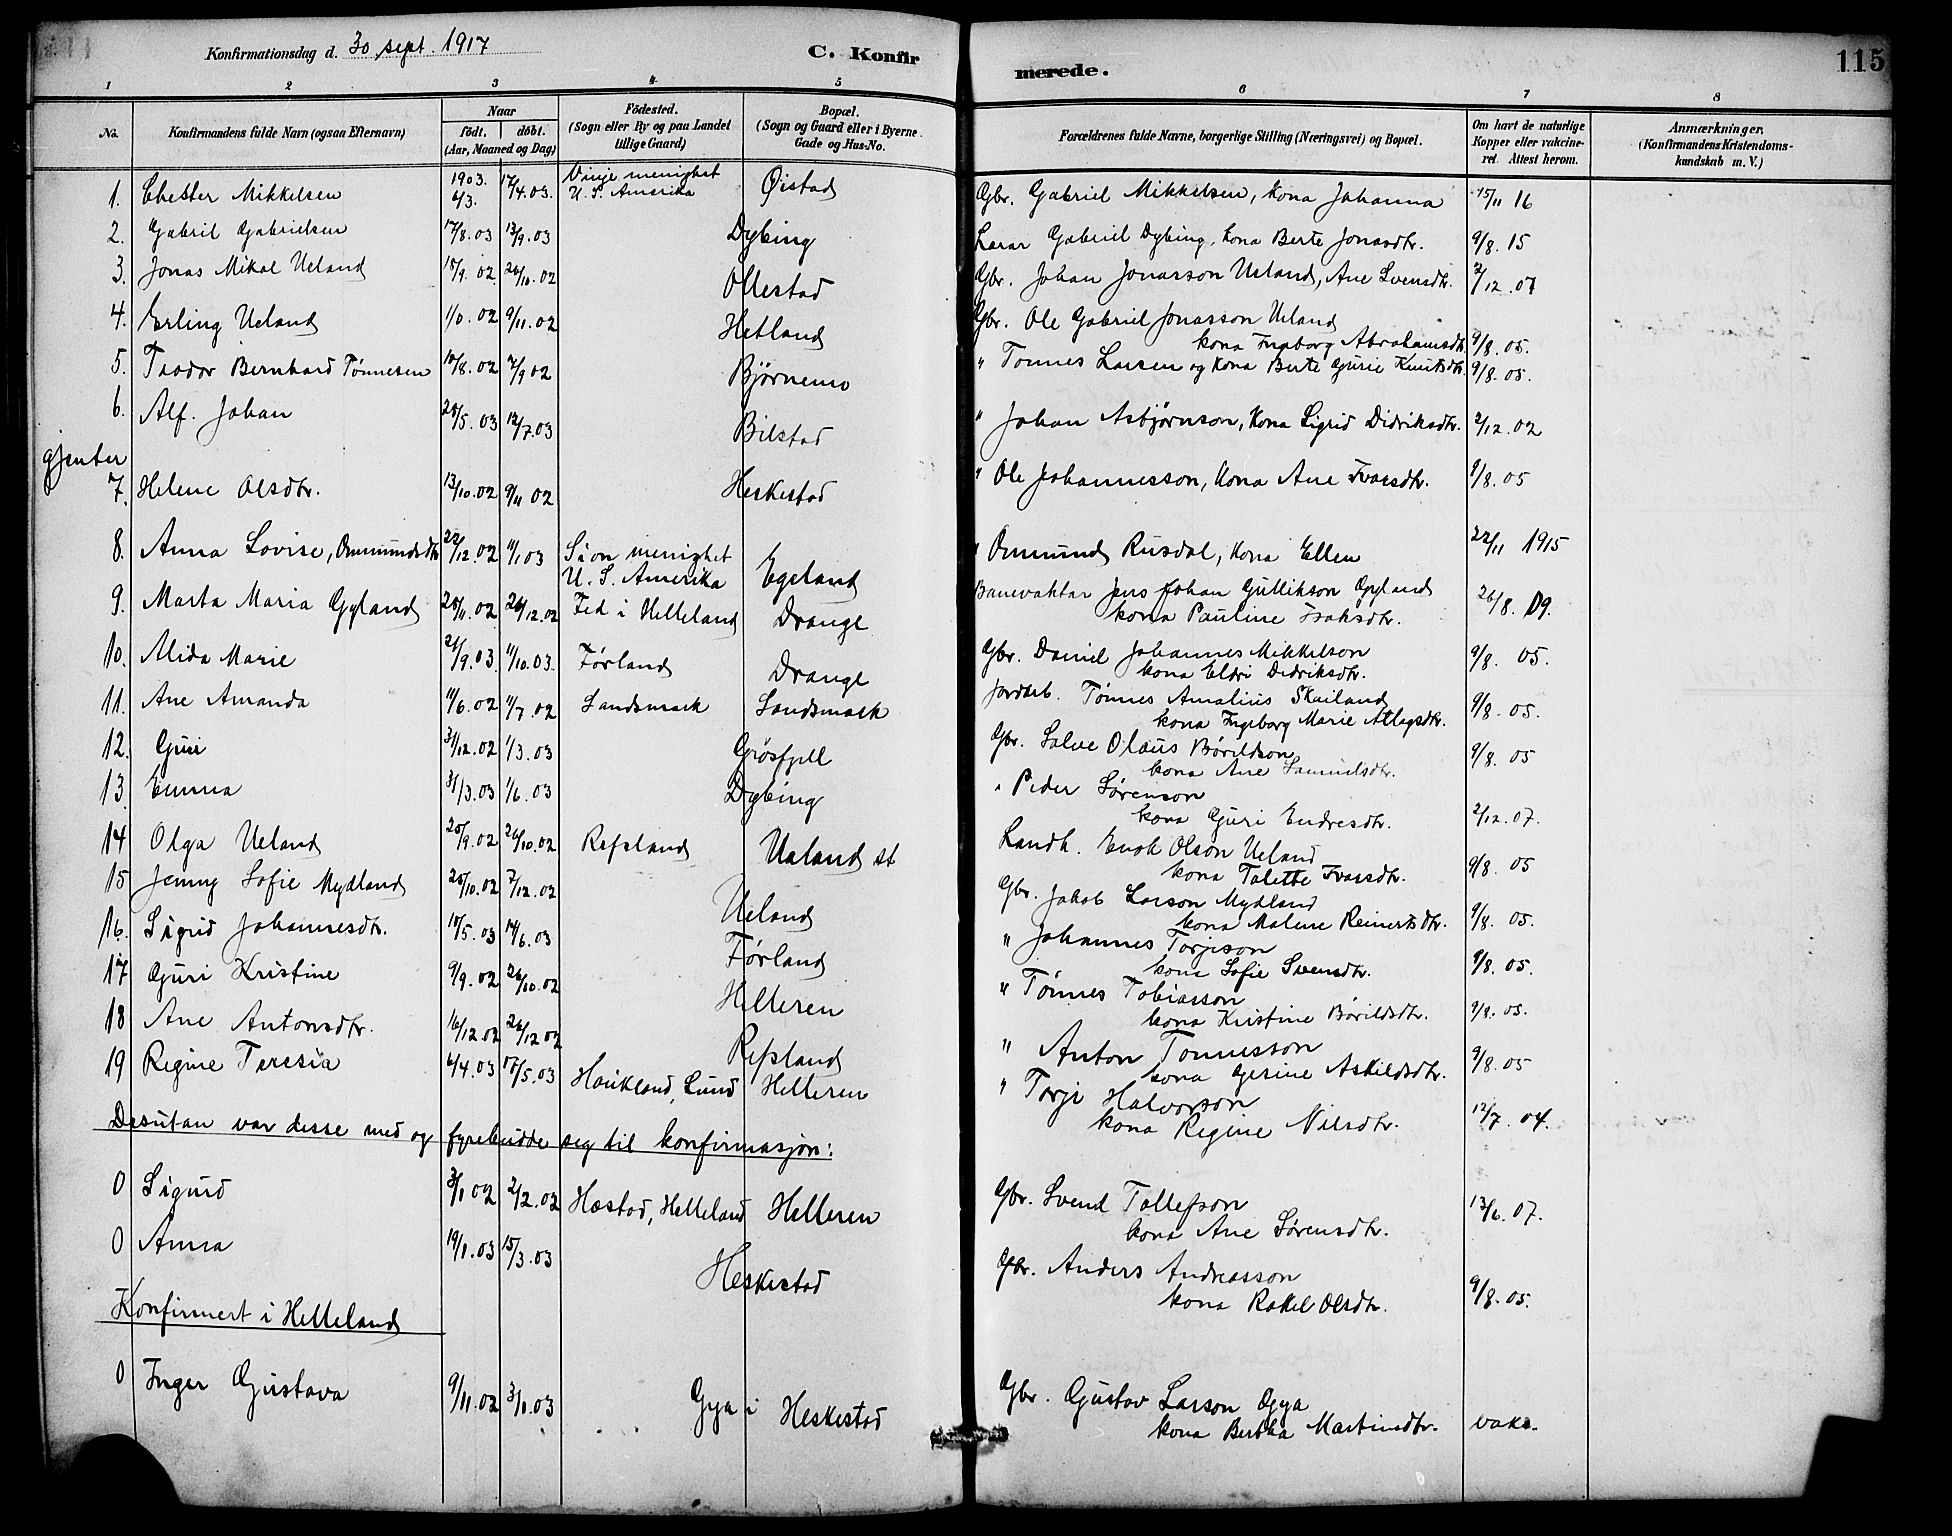 Konfirmationsdag d. 30 sept. 1917
C. Konfirmerede.
115
1 2 3 4 5 6 7 8
No.
Konfirmandens fulde Navn (ogsaa Efternavn)
Naar
födt. döbt.
(Aar, Maaned og Dag)
Födested.
(Sogn eller By og paa Landet
tillige Gaard)
Bopæl.
(Sogn og Gaard eller i Byerne
Gade og Hus-No.
Forældrenes fulde Navne, borgerlige Stilling (Næringsvei) og Bopæl.
Om havt de naturlige
Kopper eller vakcine-
ret. Attest herom.
Anmærkninger.
(Konfirmandens Kristendoms-
kundskab m. V.)
1. Chester Mikkelsen 1903. 6/3. 17/4.03. Vinje menighet U. S. Amerika Øistad Gbr. Gabriel Mikkelsen, kona Johanna 15/11 16
2. Gabriel Gabrielsen 17/8.03 13/9.03 Dybing Lærar Gabriel Dybing, kona Berte Jonasdtr. 9/8. 15
3. Jonas Mikal Ueland 18/9. 02 26/10.02 Ollestad Gbr. Johan Jonasson Ueland, Ane Svensdtr. 2/12.07
4. Erling Ueland 1/10.02 9/11.02 Hetland Gbr. Ole Gabriel Jonasson Ueland
kona Ingeborg Abrahamsdtr. 9/8.05.
5. Teodor Bernhard Tønnesen 10/8.02 7/9 02 Bjørnemo " Tønnes Larsen og kona Berte Gurie Knutsdtr. 9/8.05.
6. Alf. Johan 28/5.03 12/7.03 Bilstad " Johan Asbjørnson, kona Sigrid Didriksdtr. 2/12.02
gjenter
7. Helene Olsdtr. 13/10.02 9/11 02 Heskestad " Ole Johannesson, kona Ane Ivarsdtr. 9/8.05
8. Anna Lovise, Ommundsdtr 22/12.02 11/1 03 Sion menighet U. S. Amerika Egeland " Ommund Rusdal, kona Ellen 22/11 1915
9. Marta Maria Gyland 28/11.02 26/12.02 Fed i Helleland Drange Banevaktar Jens Johan Gullikson Gyland
kona Pauline Isaksdtr. 26/8. 09.
10. Alida Marie 21/9.03. 11/10.03. Førland Drange Gbr. Daniel Johannes Mikkelson
kona Eldri Didriksdtr. 9/8. 05.
11. Ane Amanda 11/6.02 11/7.02 Landsmark Landsmark Jordarb. Tønnes Amalius Skailand
kona Ingeborg Marie Atlagsdtr. 9/8.05.
12. Guri 31/12.02 1/3.03 Grøsfjell Gbr. Salve Olaus Bårildson
kona Ane Samuelsdtr. 9/8.05
13. Emma 31/3.03 1/6.03 Dybing " Peder Sørenson
kona Guri Endresdtr. 2/12.07.
14 Olga Ueland 20/9.02 26/10.02 Refsland Ualand st Landh. Enok Olson Ueland
kona Talette Ivarsdtr. 9/8.05
15 Jenny Sofie Mydland 25/10.02 7/12.02 Ueland Gbr. Jakob Larson Mydland
kona Malene Reinertsdtr. 9/8.05.
16. Sigrid Johannesdtr. 18/5.03 14/6.03 Førland " Johannes Torjeson
kona Sofie Svensdtr. 9/8.05.
17 Guri Kristine 9/9.02 26/10.02 Helleren " Tønnes Tobiasson
kona Kristine Bårildsdtr. 9/8.05.
18 Ane Antonsdtr. 16/12.02 26/12 02 Refsland " Anton Tønnesson
kona Gesine Askildsdtr. 9/8.05
19 Regine Teresia 6/4.03 17/5.03 Haukland, Lund Helleren " Torje Halvorson
kona Regine Nilsdtr. 12/7.04.
Desutan var desse med og fyrebudde seg til konfirmasjon:
0 Sigurd 3/1 02 2/2.02 Hæstad, Helleland Helleren Gbr. Svend Tollefson
kona Ane Sørensdtr. 13/6.07.
0 Anna 19/1.03 15/3.03 Heskestad Gbr. Anders Andreasson
kona Rakel Olsdtr. 9/8.05.
Konfirmert i Helleland
0 Inger Gustava 9/11.02 3/1.03 Gya i Heskestad Gbr. Gustav Larson Gya
kona Bertha Martinsdtr. vaks.